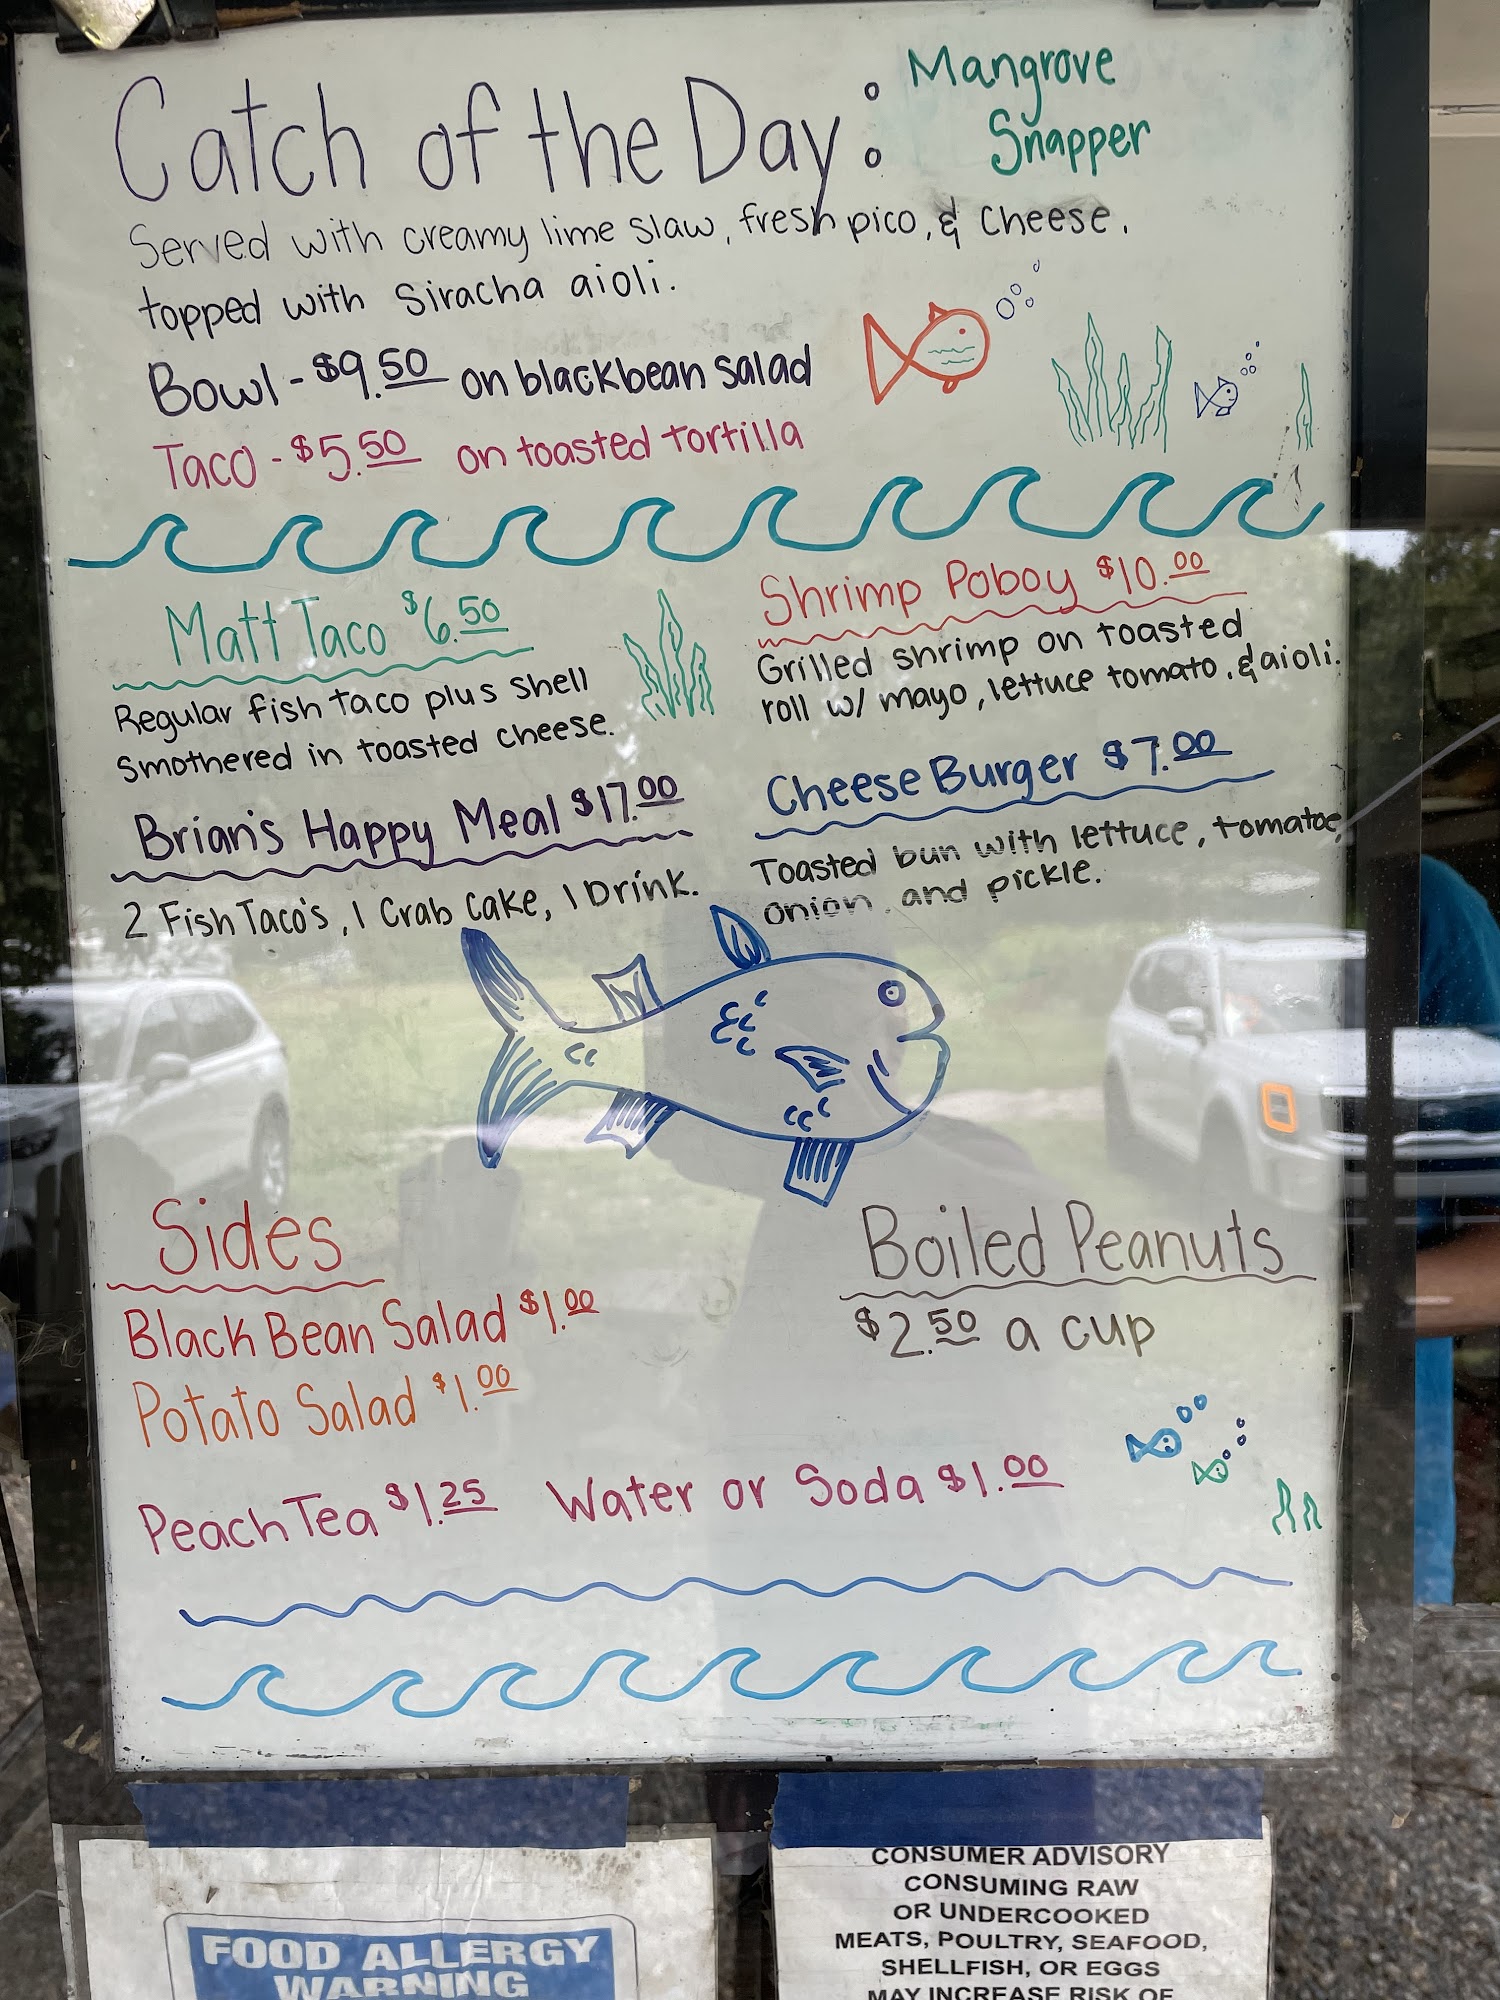 Catch of the Day: Mangrove
Snapper
Served with creamy lime slaw, fresh pico, & cheese.
topped with siracha aioli.
Bowl - $9.50 on blackbean salad
Taco - $5.50 on toasted tortilla
Matt Taco $6.50
Regular fish taco plus shell
smothered in toasted cheese.
Brian's Happy Meal $17.00
2 Fish Taco's, 1 Crab Cake, 1 Drink.
Shrimp Poboy $10.00
Grilled shrimp on toasted
roll w/ mayo, lettuce tomato, & aioli.
Cheese Burger $7.00
Toasted bun with lettuce, tomatoe,
onion, and pickle.
Sides
Black Bean Salad $1.00
Potato Salad $1.00
Boiled Peanuts
$2.50 a cup
Peach Tea $1.25 Water or Soda $1.00
FOOD ALLERGY
WARNING
CONSUMER ADVISORY
CONSUMING RAW
OR UNDERCOOKED
MEATS, POULTRY, SEAFOOD,
SHELLFISH, OR EGGS
MAY INCREASE RISK OF